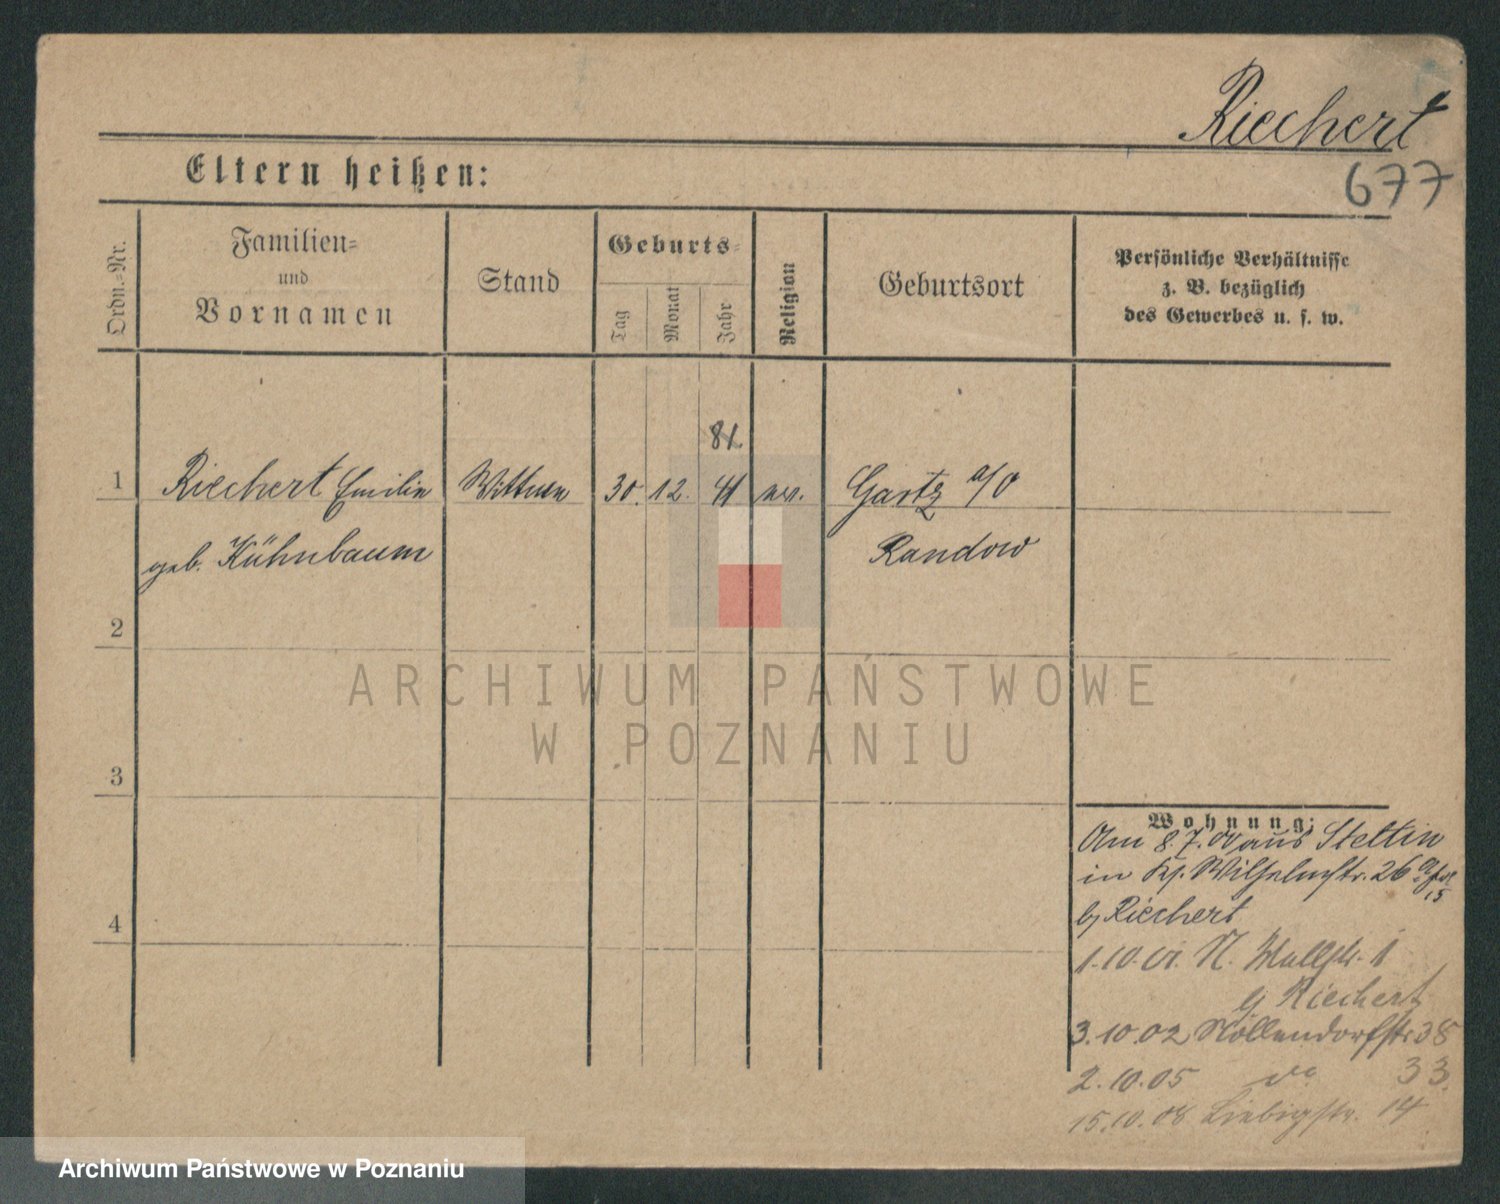 Riechert
677
Eltern heißen:
Ordn.-Nr.
Familien-
und
Vornamen
Stand
Geburts-
Tag
Monat
Jahr
Religion
Geburtsort
Persönliche Verhältnisse
z. B. bezüglich
des Gewerbes u. s. w.
81
1 Riechert Emilie Wittwe 30. 12. 41 ev. Gartz a/O
geb. Kühnbaum Randow
2
ARCHIWUM PAŃSTWOWE
W POZNANIU
3
Wohnung:
Am 8.7.00 aus Stettin
in Wilhelmstr. 26
b/ Riechert
4
1.10.01. N. Wallstr. 1
b/ Riechert
3.10.02 Nollendorfstr 38
2.10.05 do 33.
15.10.08 Liebigstr. 14
Archiwum Państwowe w Poznaniu